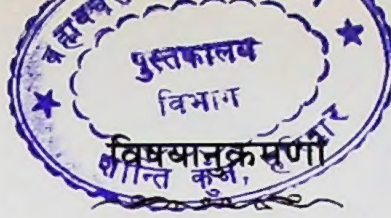 पुस्तकालय
विभाग
विषयानुक्रमणी
शान्ति कुंज,